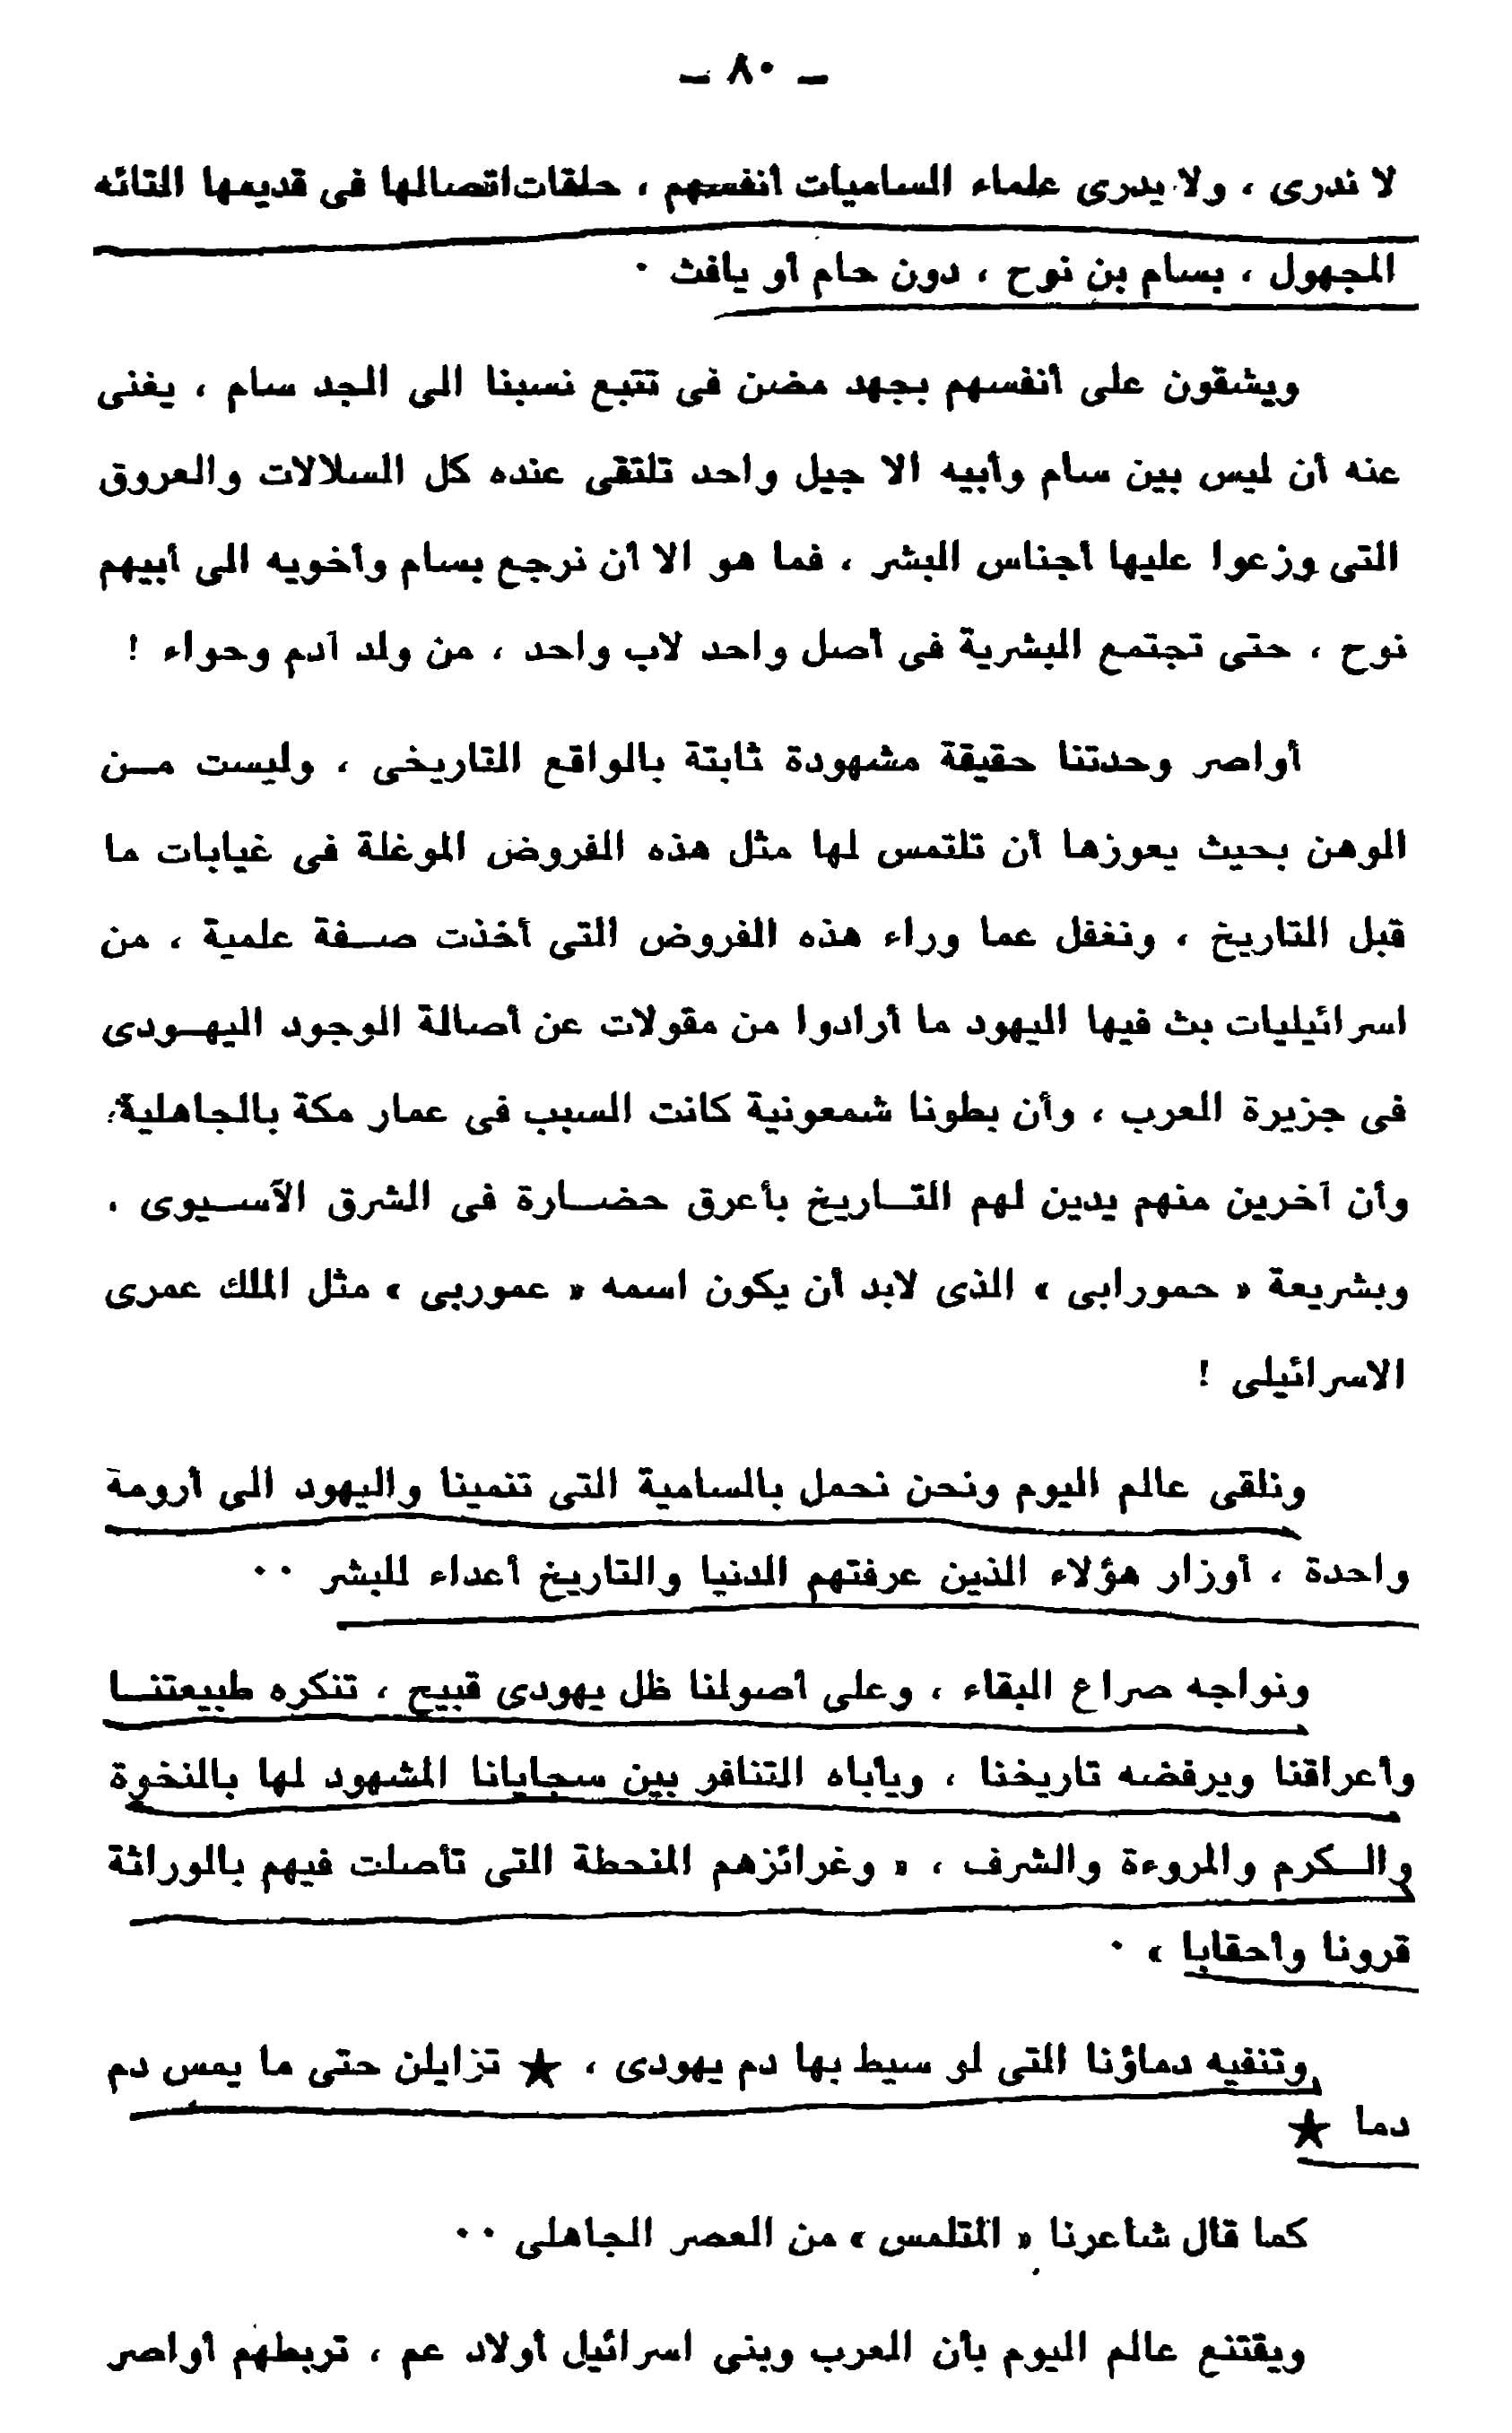 ـ ٨٠ ـ
لا ندرى ، ولا يدرى علماء الساميات أنفسهم ، حلقات اتصالها فى قديمها التائه
المجهول ، بسام بن نوح ، دون حام أو يافث ٠
ويشقون على أنفسهم بجهد مضن فى تتبع نسبنا الى الجد سام ، يغنى
عنه أن ليس بين سام وأبيه الا جيل واحد تلتقى عنده كل السلالات والعروق
التى وزعوا عليها أجناس البشر ، فما هو الا أن نرجع بسام وأخويه الى أبيهم
نوح ، حتى تجتمع البشرية فى أصل واحد لاب واحد ، من ولد آدم وحواء !
أواصر وحدتنا حقيقة مشهودة ثابتة بالواقع التاريخى ، وليست مـن
الوهن بحيث يعوزها أن تلتمس لها مثل هذه الفروض الموغلة فى غيابات ما
قبل التاريخ ، ونغفل عما وراء هذه الفروض التى أخذت صـفة علمية ، من
اسرائيليات بث فيها اليهود ما أرادوا من مقولات عن أصالة الوجود اليهـودى
فى جزيرة العرب ، وأن بطونا شمعونية كانت السبب فى عمار مكة بالجاهلية،
وأن آخرين منهم يدين لهم التـاريخ بأعرق حضـارة فى الشرق الآسـيوى ،
وبشريعة « حمورابى » الذى لابد أن يكون اسمه « عموربى » مثل الملك عمرى
الاسرائيلى !
ونلقى عالم اليوم ونحن نحمل بالسامية التى تنمينا واليهود الى أرومة
واحدة ، أوزار هؤلاء الذين عرفتهم الدنيا والتاريخ أعداء للبشر ٠٠
ونواجه صراع البقاء ، وعلى أصولنا ظل يهودى قبيح ، تنكره طبيعتنـا
وأعراقنا ويرفضه تاريخنا ، ويأباه التنافر بين سجايانا المشهود لها بالنخوة
والـكرم والمروءة والشرف ، « وغرائزهم المنحطة التى تأصلت فيهم بالوراثة
قرونا وأحقابا » ٠
وتنفيه دماؤنا التى لو سيط بها دم يهودى ، ★ تزايلن حتى ما يمس دم
دما ★
كما قال شاعرنا « المتلمس » من العصر الجاهلى ٠٠
ويقتنع عالم اليوم بأن العرب وبنى اسرائيل أولاد عم ، تربطهم أواصر